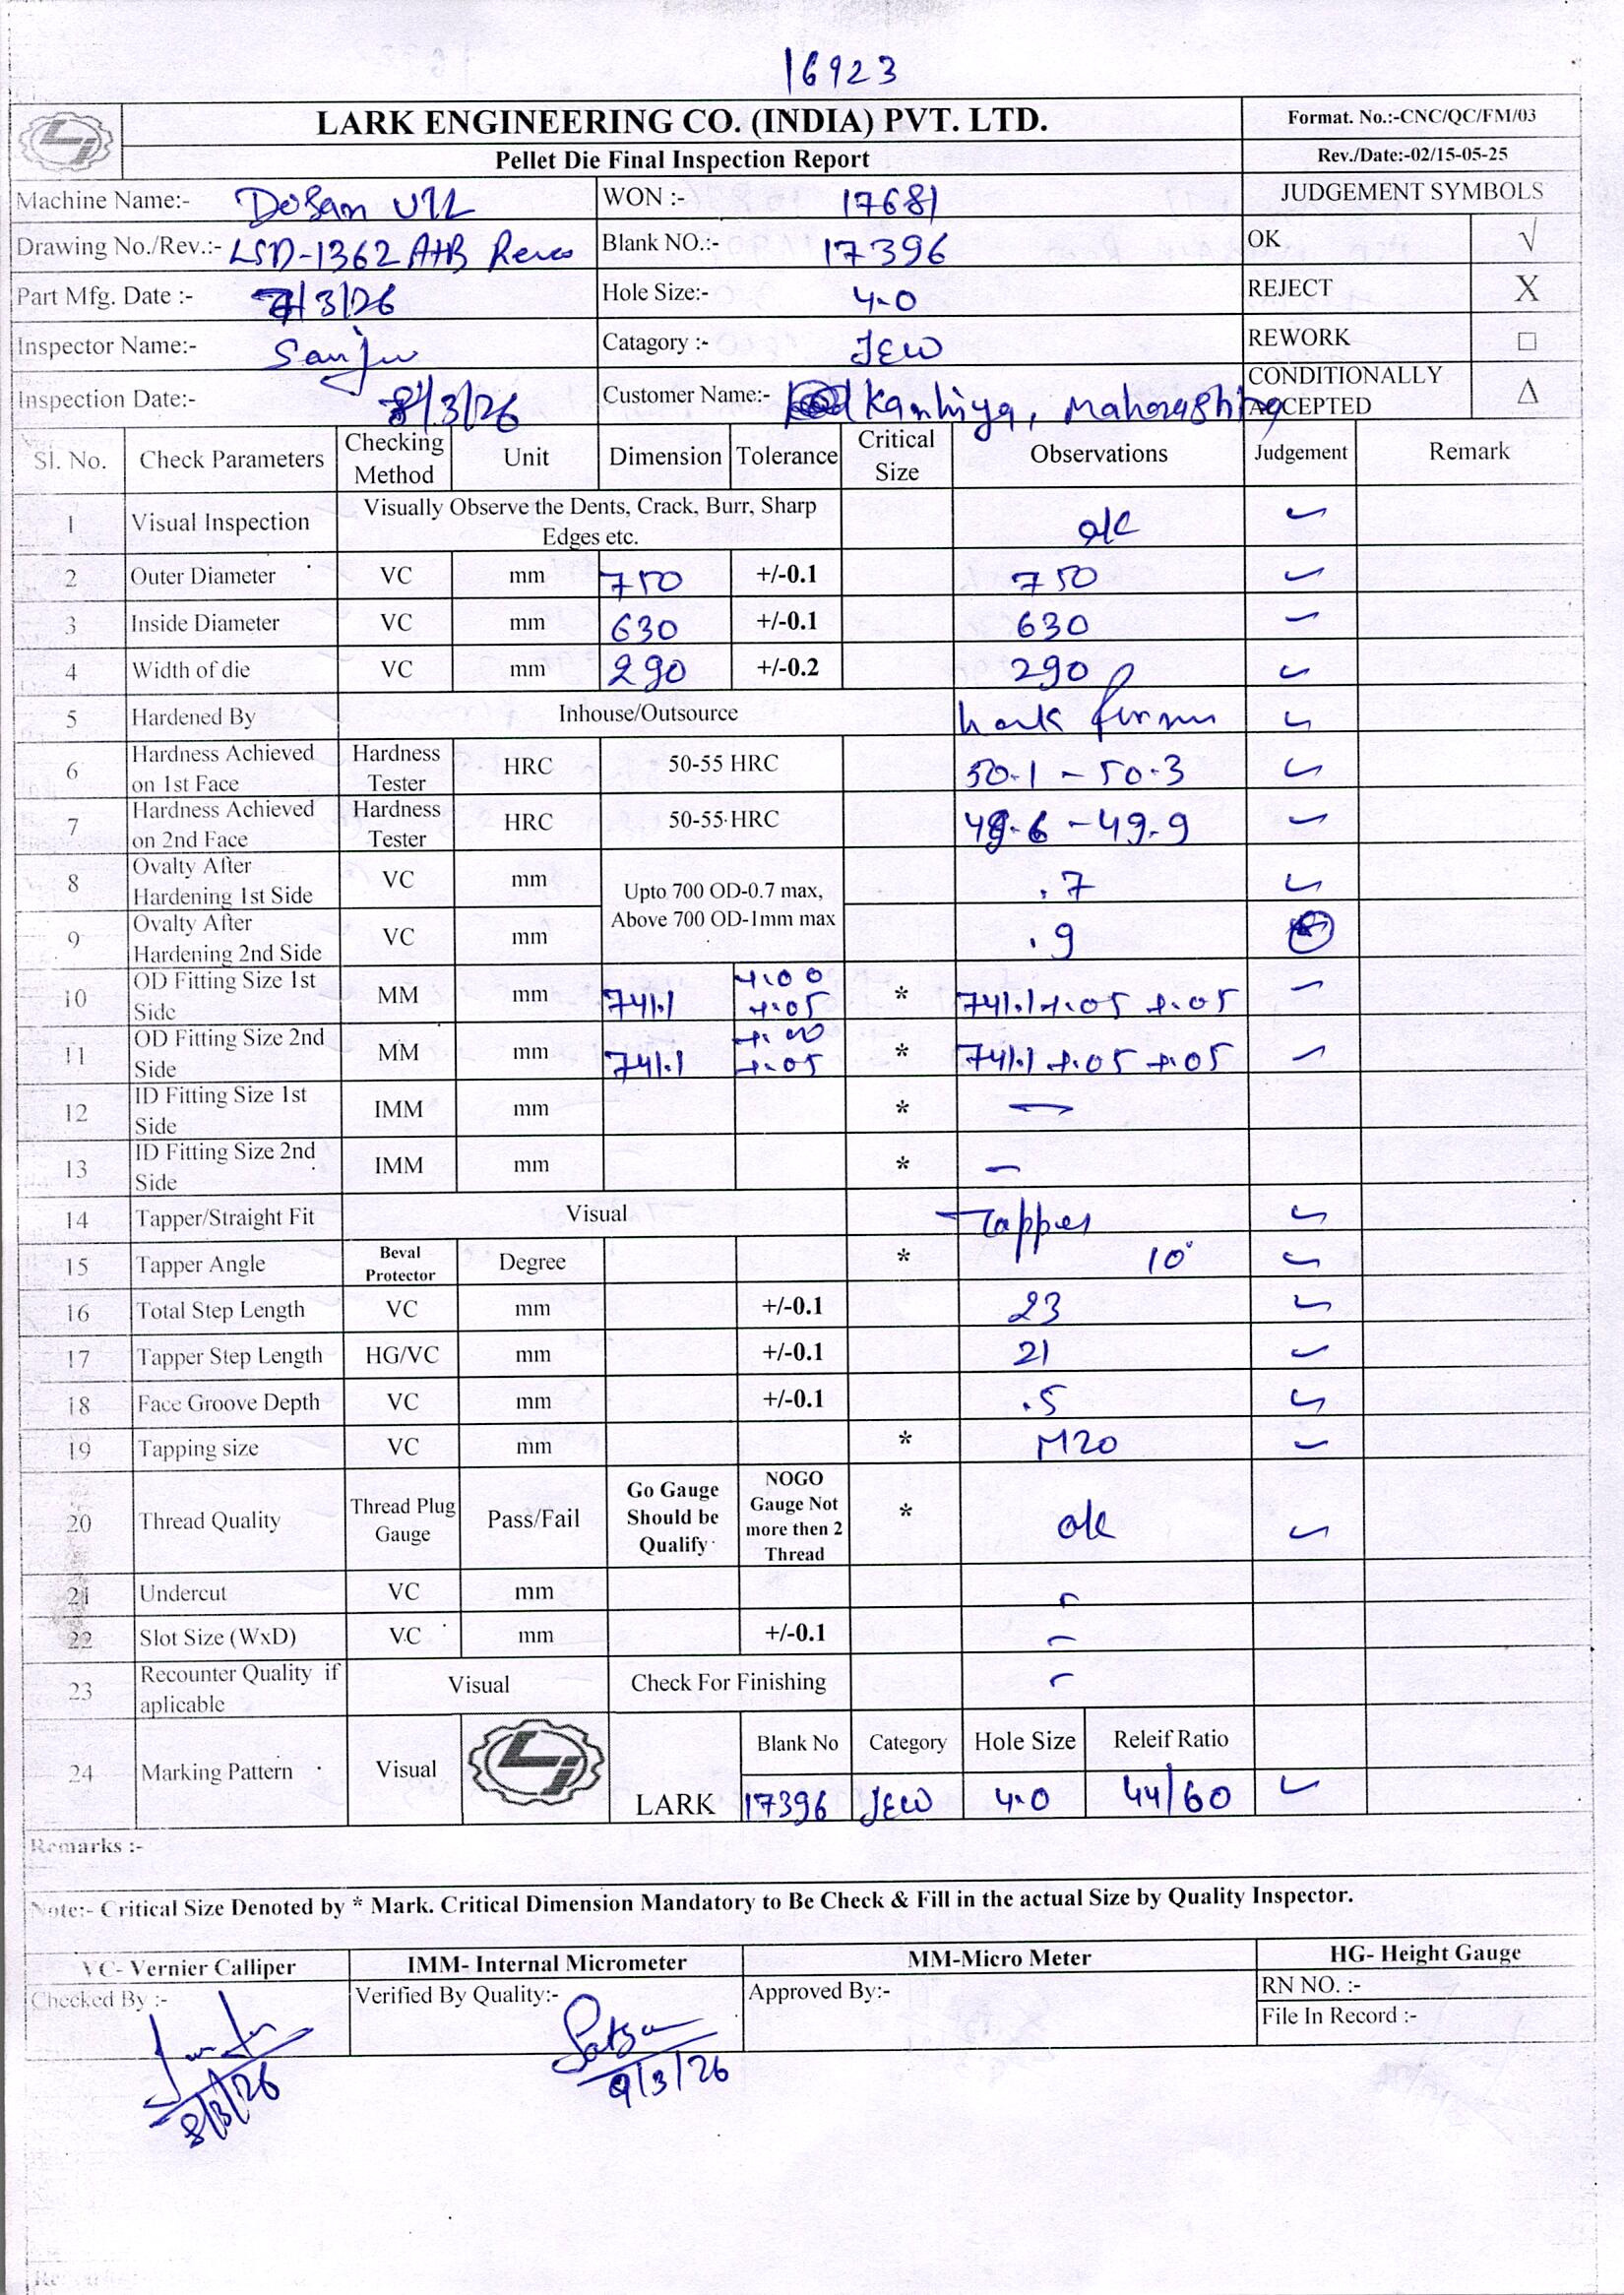 16923
LARK ENGINEERING CO. (INDIA) PVT. LTD.
Format. No.:-CNC/QC/FM/03
Pellet Die Final Inspection Report
Rev./Date:-02/15-05-25
Machine Name:- WON :- 17681 JUDGEMENT SYMBOLS
Drawing No./Rev.:- LSD-1362 A+B Blank NO.:- 17396 OK √
Part Mfg. Date :- 7/3/26 Hole Size:- 4.0 REJECT X
Inspector Name:- Sanju Catagory :- JEW REWORK □
Inspection Date:- 8/3/26 Customer Name:- Kanhiya, Maharashtra CONDITIONALLY ACCEPTED Δ
Sl. No. Check Parameters Checking Method Unit Dimension Tolerance Critical Size Observations Judgement Remark
1 Visual Inspection Visually Observe the Dents, Crack, Burr, Sharp Edges etc. o/c ✓
2 Outer Diameter VC mm 750 +/-0.1 750 ✓
3 Inside Diameter VC mm 630 +/-0.1 630 ✓
4 Width of die VC mm 290 +/-0.2 290 ✓
5 Hardened By Inhouse/Outsource ✓
6 Hardness Achieved on 1st Face Hardness Tester HRC 50-55 HRC 50.1 - 50.3 ✓
7 Hardness Achieved on 2nd Face Hardness Tester HRC 50-55 HRC 49.6 - 49.9 ✓
8 Ovalty After Hardening 1st Side VC mm Upto 700 OD-0.7 max, .7 ✓
9 Ovalty After Hardening 2nd Side VC mm Above 700 OD-1mm max .9
10 OD Fitting Size 1st Side MM mm 741.1 +.00 +.05 * 741.1 +.05 +.05 ✓
11 OD Fitting Size 2nd Side MM mm 741.1 +.00 +.05 * 741.1 +.05 +.05 ✓
12 ID Fitting Size 1st Side IMM mm * —
13 ID Fitting Size 2nd Side IMM mm * —
14 Tapper/Straight Fit Visual Tapper ✓
15 Tapper Angle Beval Protector Degree * 10° ✓
16 Total Step Length VC mm +/-0.1 23 ✓
17 Tapper Step Length HG/VC mm +/-0.1 21 ✓
18 Face Groove Depth VC mm +/-0.1 .5 ✓
19 Tapping size VC mm * M20 ✓
20 Thread Quality Thread Plug Gauge Pass/Fail Go Gauge Should be Qualify NOGO Gauge Not more then 2 Thread * ok ✓
21 Undercut VC mm –
22 Slot Size (WxD) VC mm +/-0.1 –
23 Recounter Quality if aplicable Visual Check For Finishing –
24 Marking Pattern Visual LARK Blank No Category Hole Size Releif Ratio
17396 JEW 4.0 44/60 ✓
Remarks :-
Note:- Critical Size Denoted by * Mark. Critical Dimension Mandatory to Be Check & Fill in the actual Size by Quality Inspector.
VC- Vernier Calliper IMM- Internal Micrometer MM-Micro Meter HG- Height Gauge
Checked By :- Verified By Quality:- Approved By:- RN NO. :-
File In Record :-
8/3/26 9/3/26